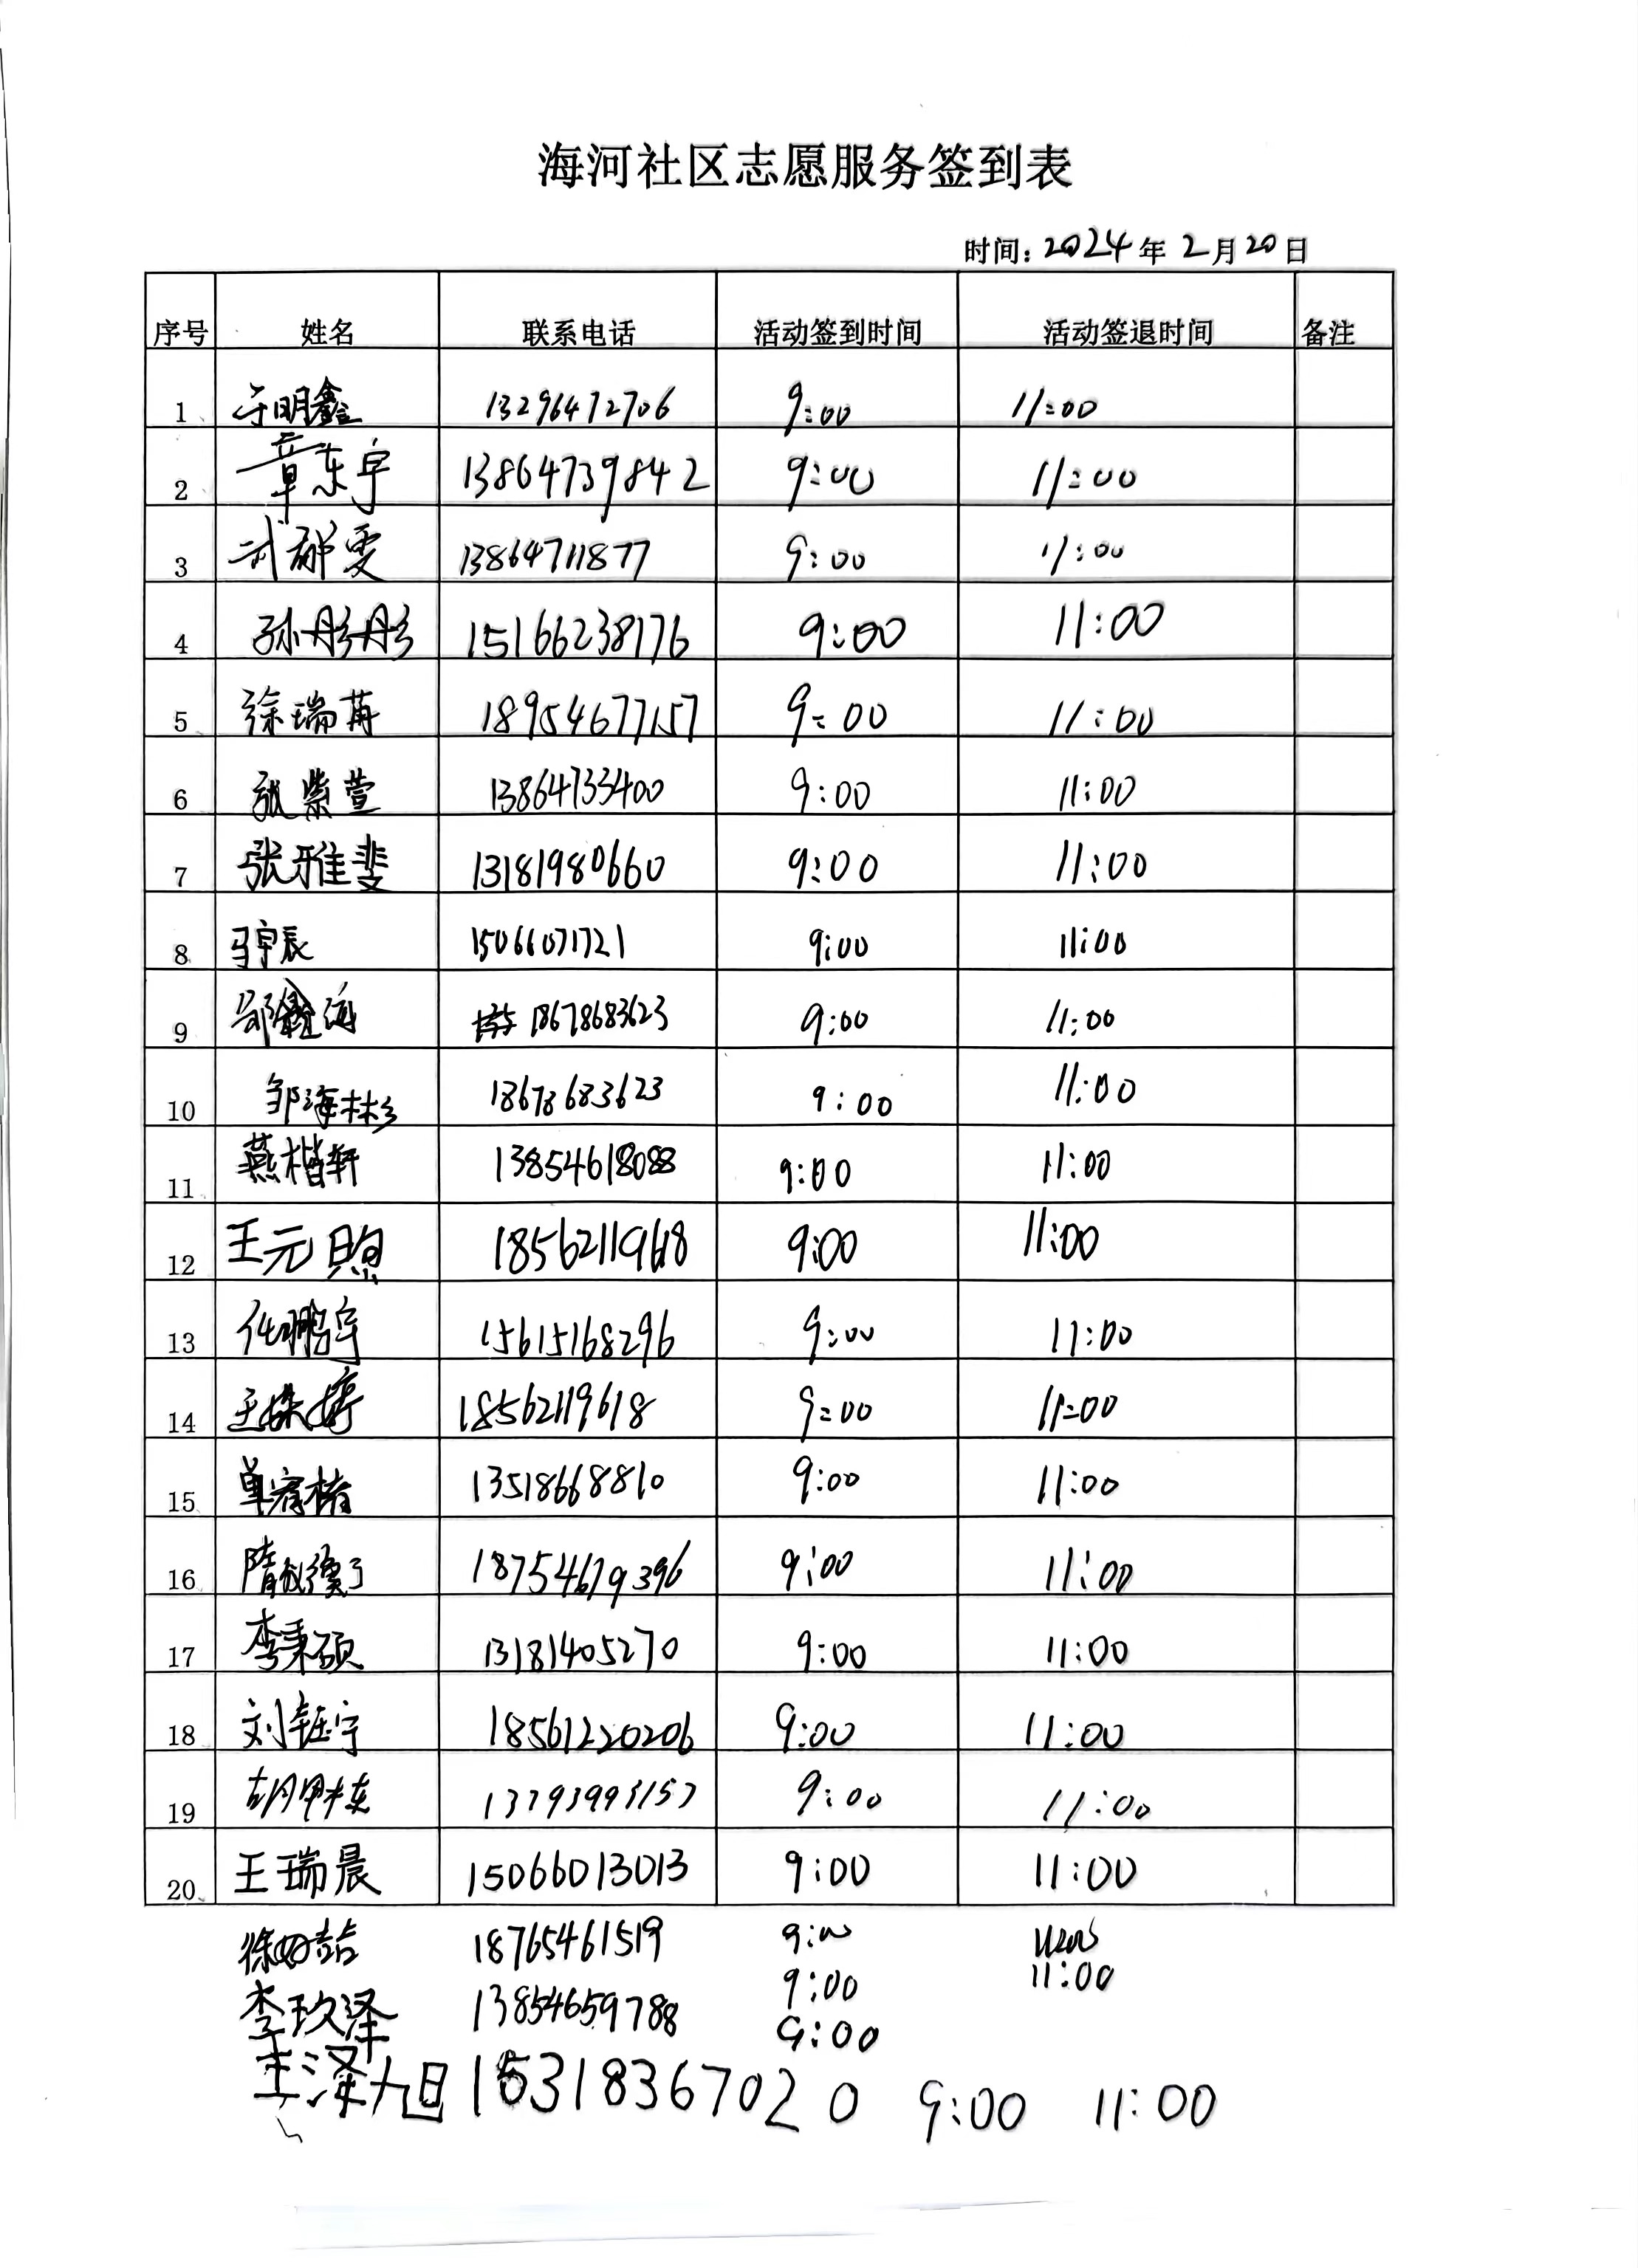 海河社区志愿服务签到表
时间：2024年2月20日
序号 姓名 联系电话 活动签到时间 活动签退时间 备注
1 于明鑫 13296472706 9:00 11:00
2 章东宇 13864739842 9:00 11:00
3 武郡雯 13864711877 9:00 11:00
4 孙彤彤 15166238176 9:00 11:00
5 徐瑞苒 18954677157 9:00 11:00
6 张紫萱 13864733400 9:00 11:00
7 张雅斐 13181980660 9:00 11:00
8 马宇辰 15066071721 9:00 11:00
9 18678683623 9:00 11:00
10 邹海彬 18678683623 9:00 11:00
11 燕楷轩 13854618088 9:00 11:00
12 王元煦 18562119618 9:00 11:00
13 任鹏宇 15615168296 9:00 11:00
14 王姝婷 18562119618 9:00 11:00
15 13518668810 9:00 11:00
16 18754679396 9:00 11:00
17 李秉硕 13181405270 9:00 11:00
18 刘钰宁 18561220206 9:00 11:00
19 9:00 11:00
20 王瑞晨 15066013013 9:00 11:00
18765461519 9:00
李玫泽 13854659788 9:00 11:00
9:00
王泽旭 15318367020 9:00 11:00